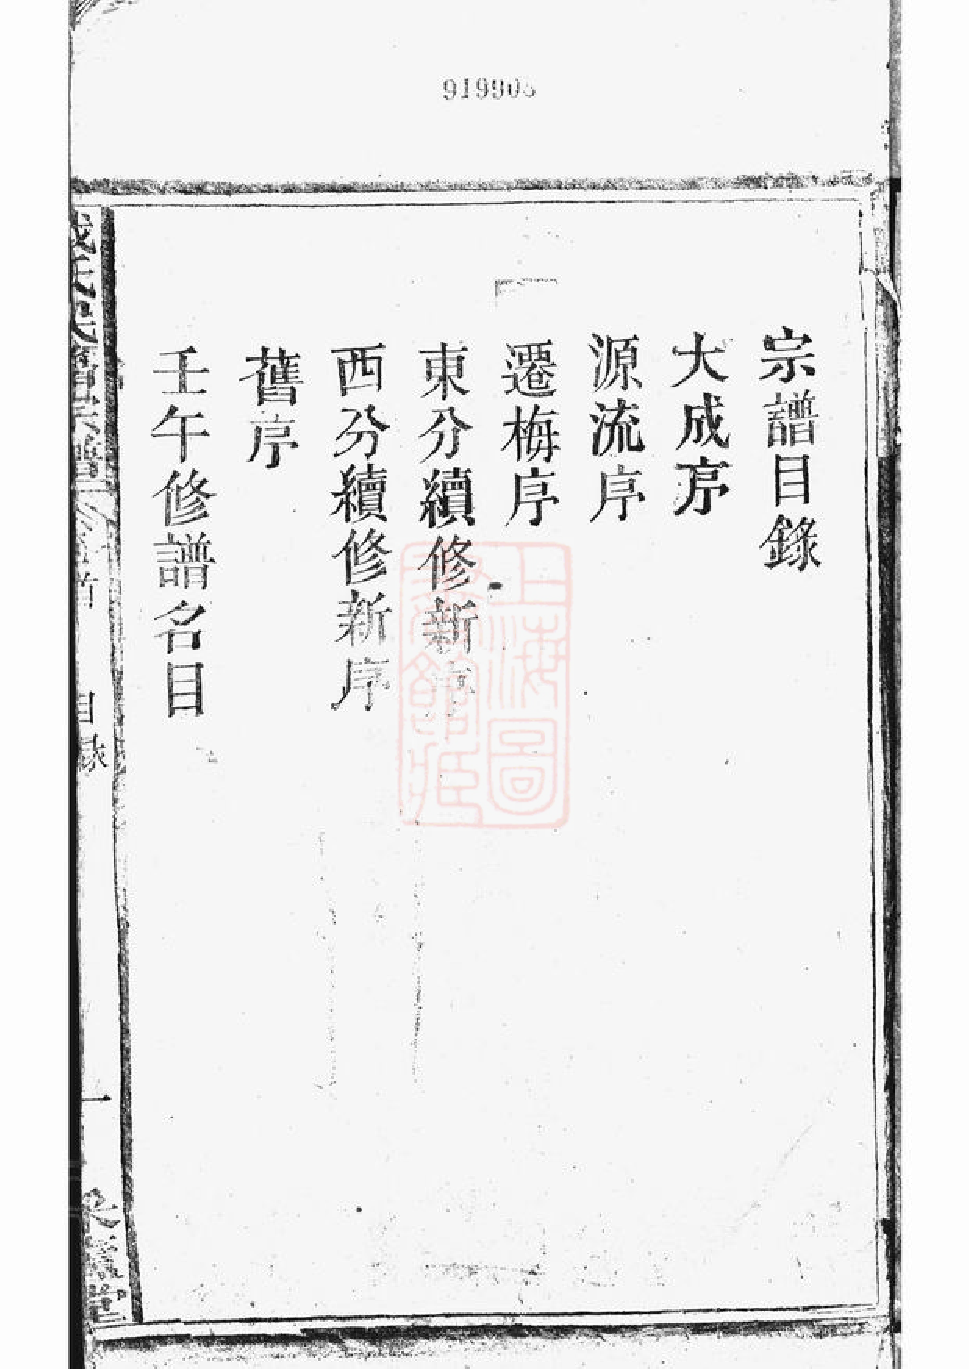 宗譜目錄
大成序
源流序
遷梅序
東分續修新序
西分續修新序
舊序
壬午修譜名目
目錄
一
上海圖
書館藏